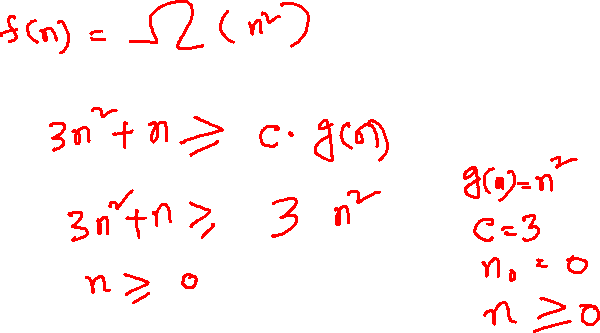 f(n) = Ω(n²)
3n² + n ≥ c · g(n)
3n² + n ≥ 3 n²
n ≥ 0
g(n) = n²
c = 3
n₀ = 0
n ≥ 0